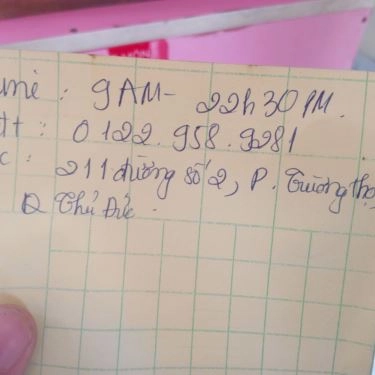 imè : 9AM - 22h30PM.
tt : 0122.958.9281
c : 211 đường số 2, P. Trường Thọ,
Q Thủ Đức.